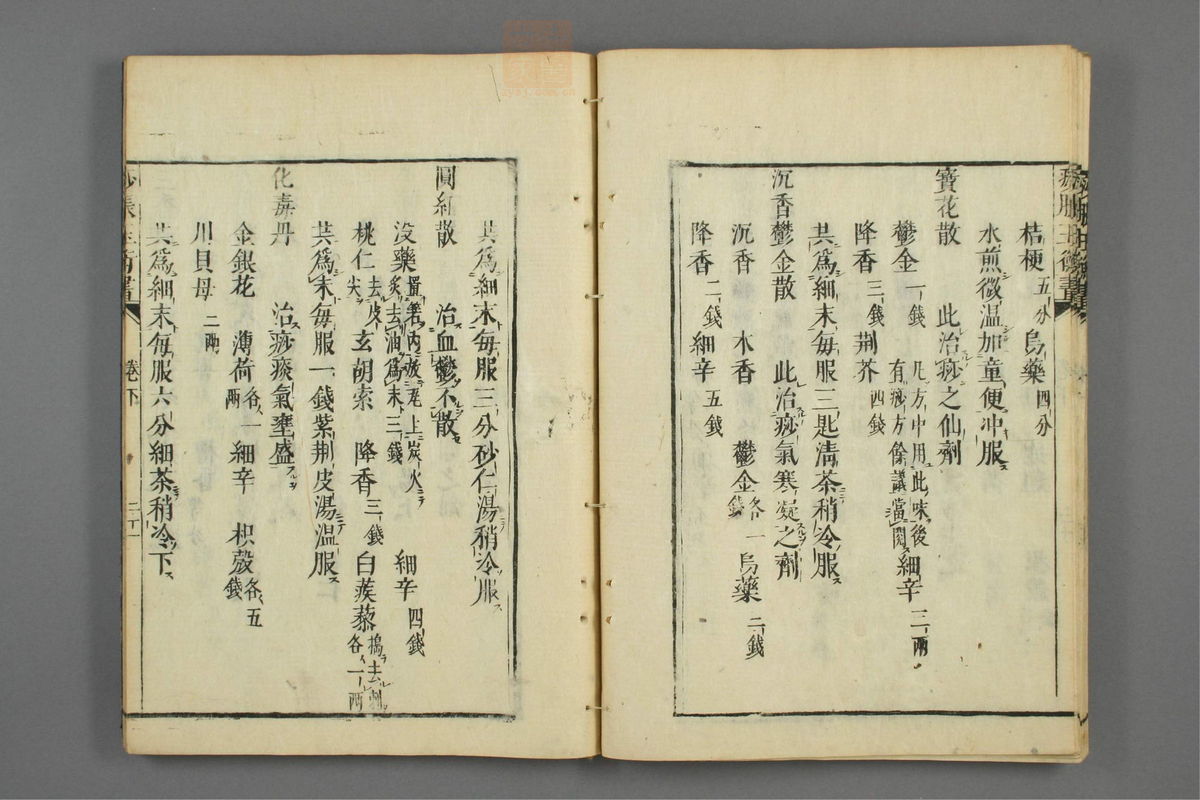 痧脹玉衡書
桔梗五分 烏藥四分
水煎微温加童便冲服
寳花散 此治痧之仙劑
鬱金一錢 凡方中用此味後有痧方餘議當閱 細辛三兩
降香三錢 荆芥四錢
共為細末每服三匙清茶稍冷服
沉香鬱金散 此治痧氣寒凝之劑
沉香 木香 鬱金各一錢 烏藥二錢
降香二錢 細辛五錢
共為細末每服三分砂仁湯稍冷服
圓紅散 治血鬱不散
没藥置箬内放瓦上炭火炙去油為末三錢 細辛四錢
桃仁去皮尖 玄胡索 降香三錢 白蒺藜搗去刺各一兩
共為末每服一錢紫荆皮湯温服
化毒丹 治痧痰氣壅盛
金銀花 薄荷各一兩 細辛 枳殻各五錢
川貝母二兩
共為細末每服六分細茶稍冷下
痧脹玉衡書 卷下